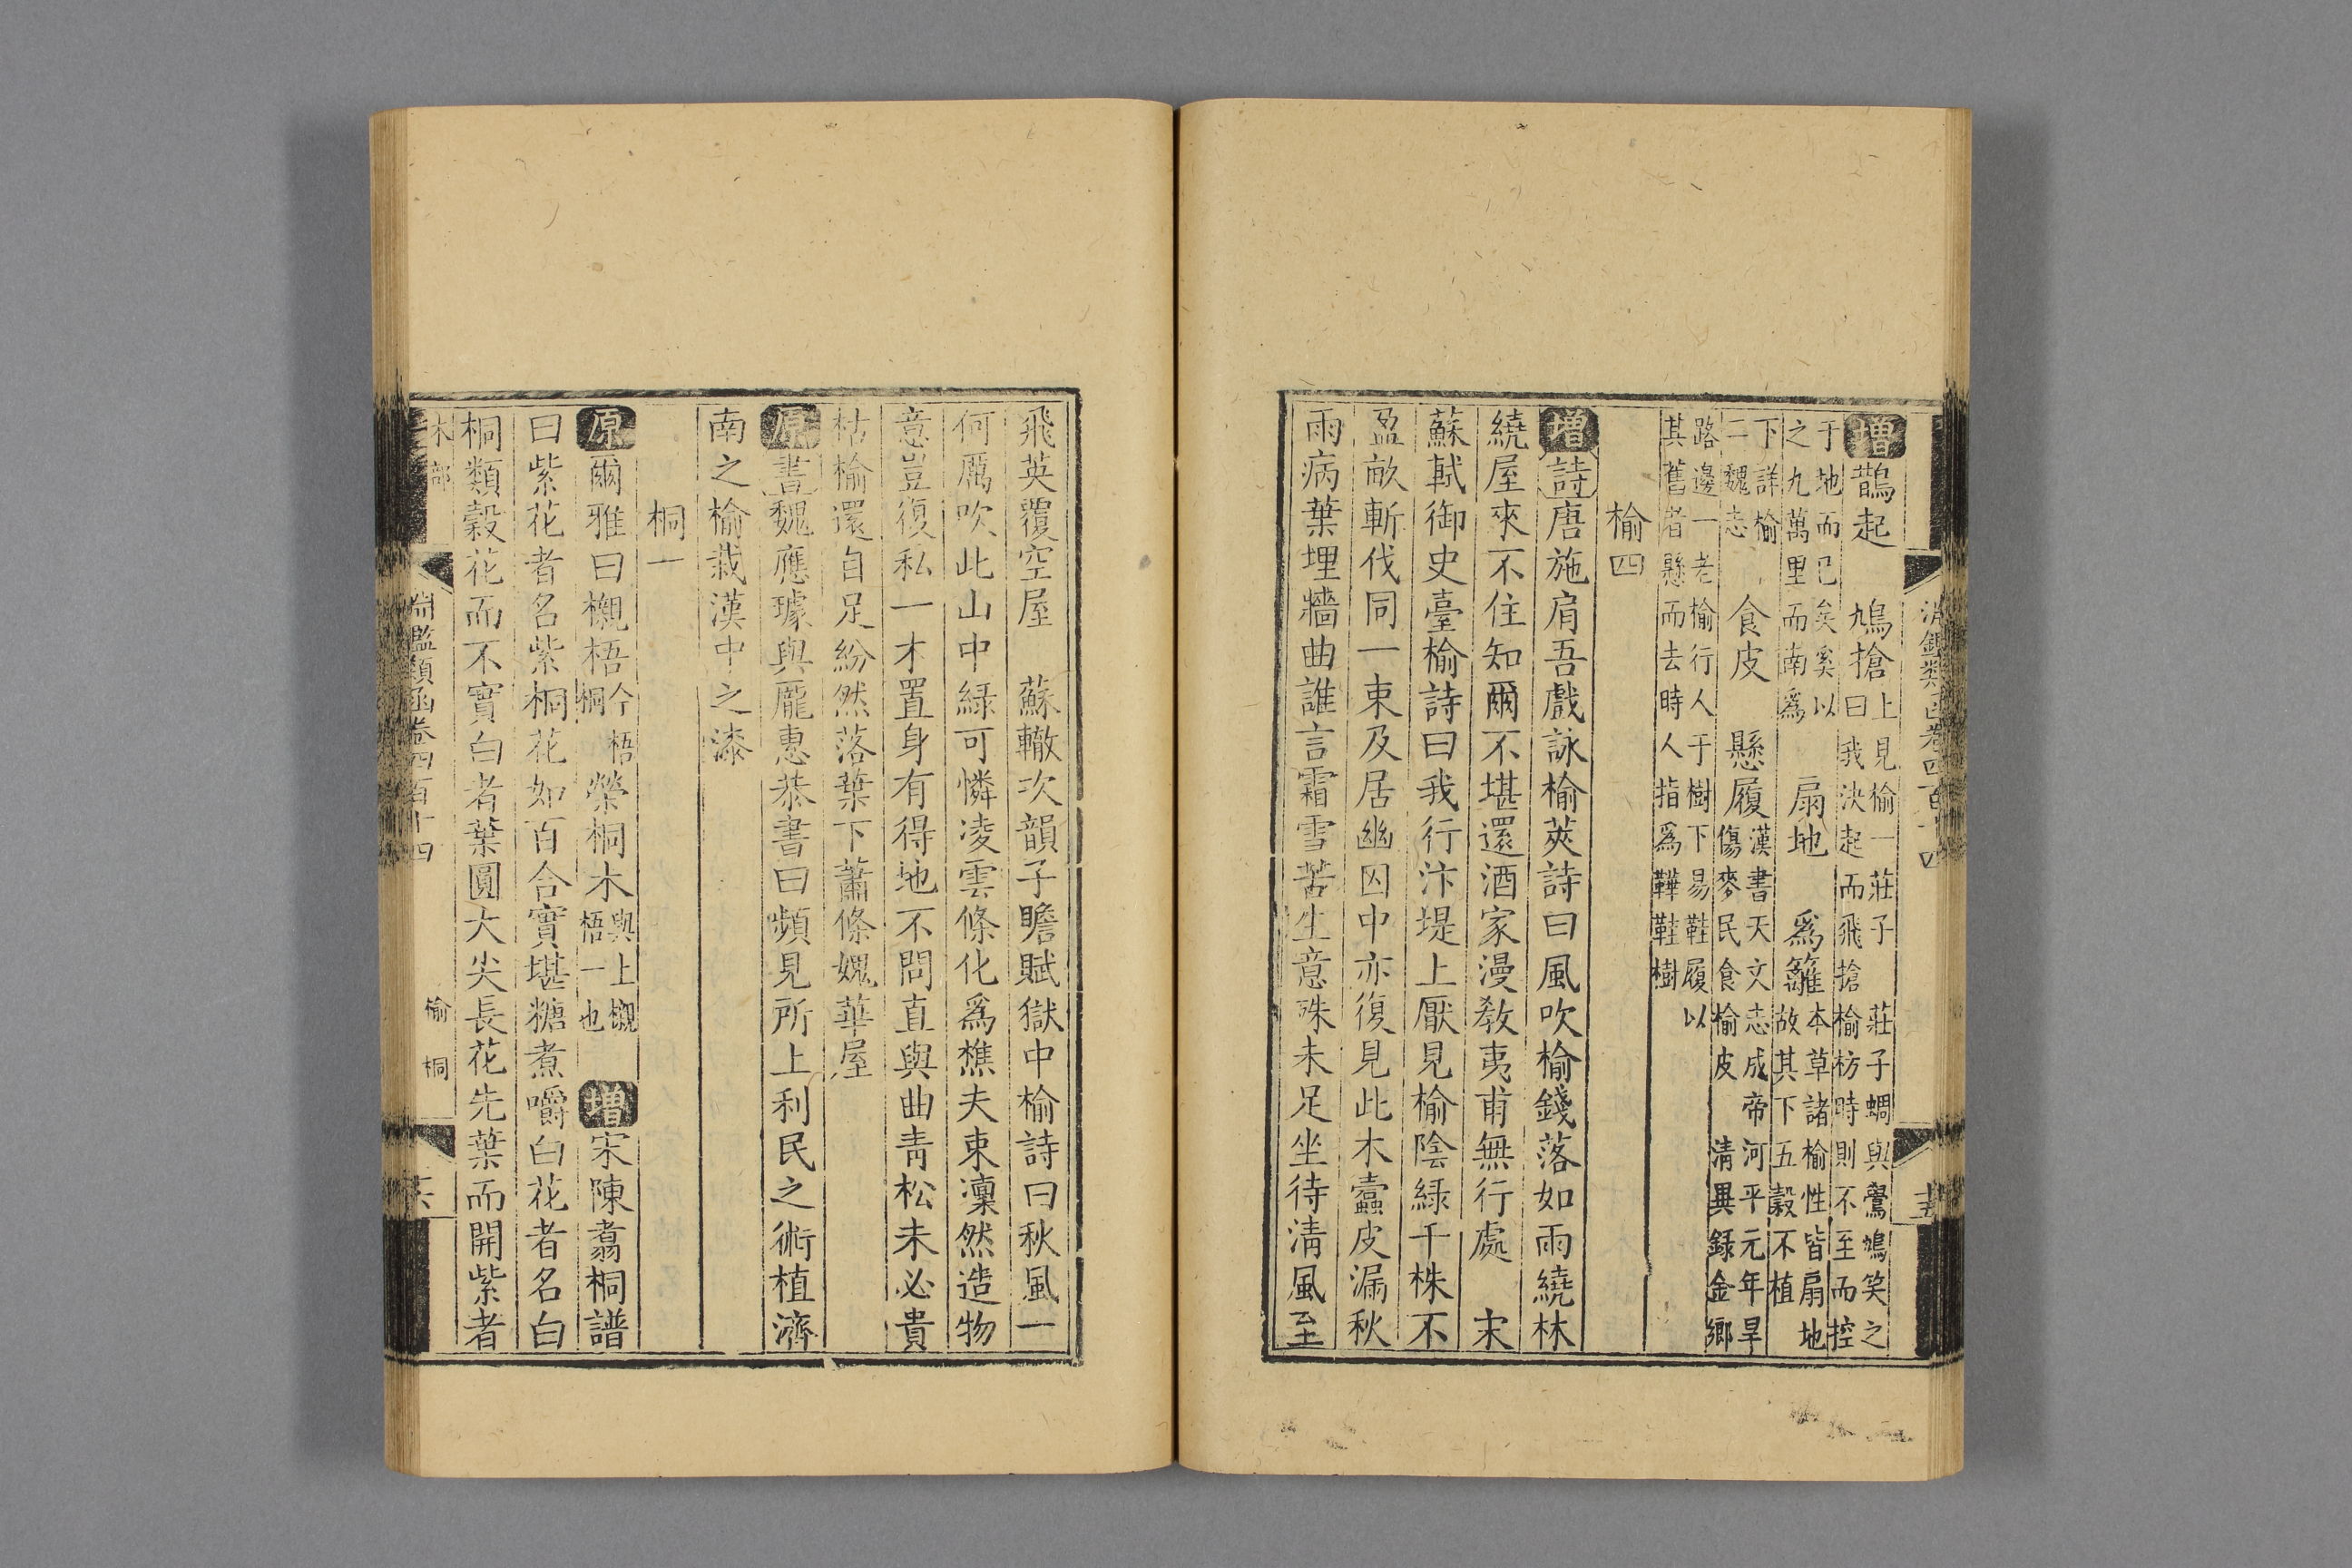 增鵲起 鳩搶上見榆一莊子 莊子蜩與鷽鳩笑之曰我決起而飛搶榆枋時則不至而控
于地而已矣奚以之九萬里而南爲 扇地 爲籬本草諸榆性皆扇地故其下五穀不植
下詳榆二魏志 食皮 懸履漢書天文志成帝河平元年旱傷麥民食榆皮 清異錄金鄉
路邊一老榆行人于樹下易鞋履以其舊者懸而去時人指爲鞾鞋樹
榆四
增詩唐施肩吾戲詠榆莢詩曰風吹榆錢落如雨繞林
繞屋來不住知爾不堪還酒家漫教夷甫無行處 宋
蘇軾御史臺榆詩曰我行汴堤上厭見榆陰綠千株不
盈畝斬伐同一束及居幽囚中亦復見此木蠹皮漏秋
雨病葉埋牆曲誰言霜雪苦生意殊未足坐待淸風至
飛英覆空屋 蘇轍次韻子瞻賦獄中榆詩曰秋風一
何厲吹此山中綠可憐凌雲條化爲樵夫束凜然造物
意豈復私一木置身有得地不問直與曲靑松未必貴
枯榆還自足紛然落葉下蕭條媿華屋
原書魏應璩與龐惠恭書曰頻見所上利民之術植濟
南之榆栽漢中之漆
桐一
原爾雅曰櫬梧今梧桐榮桐木與上櫬梧一也 增宋陳翥桐譜
曰紫花者名紫桐花如百合實堪糖煮嚼白花者名白
桐類穀花而不實白者葉圓大尖長花先葉而開紫者
木部
淵鑑類函卷四百十四
榆 桐